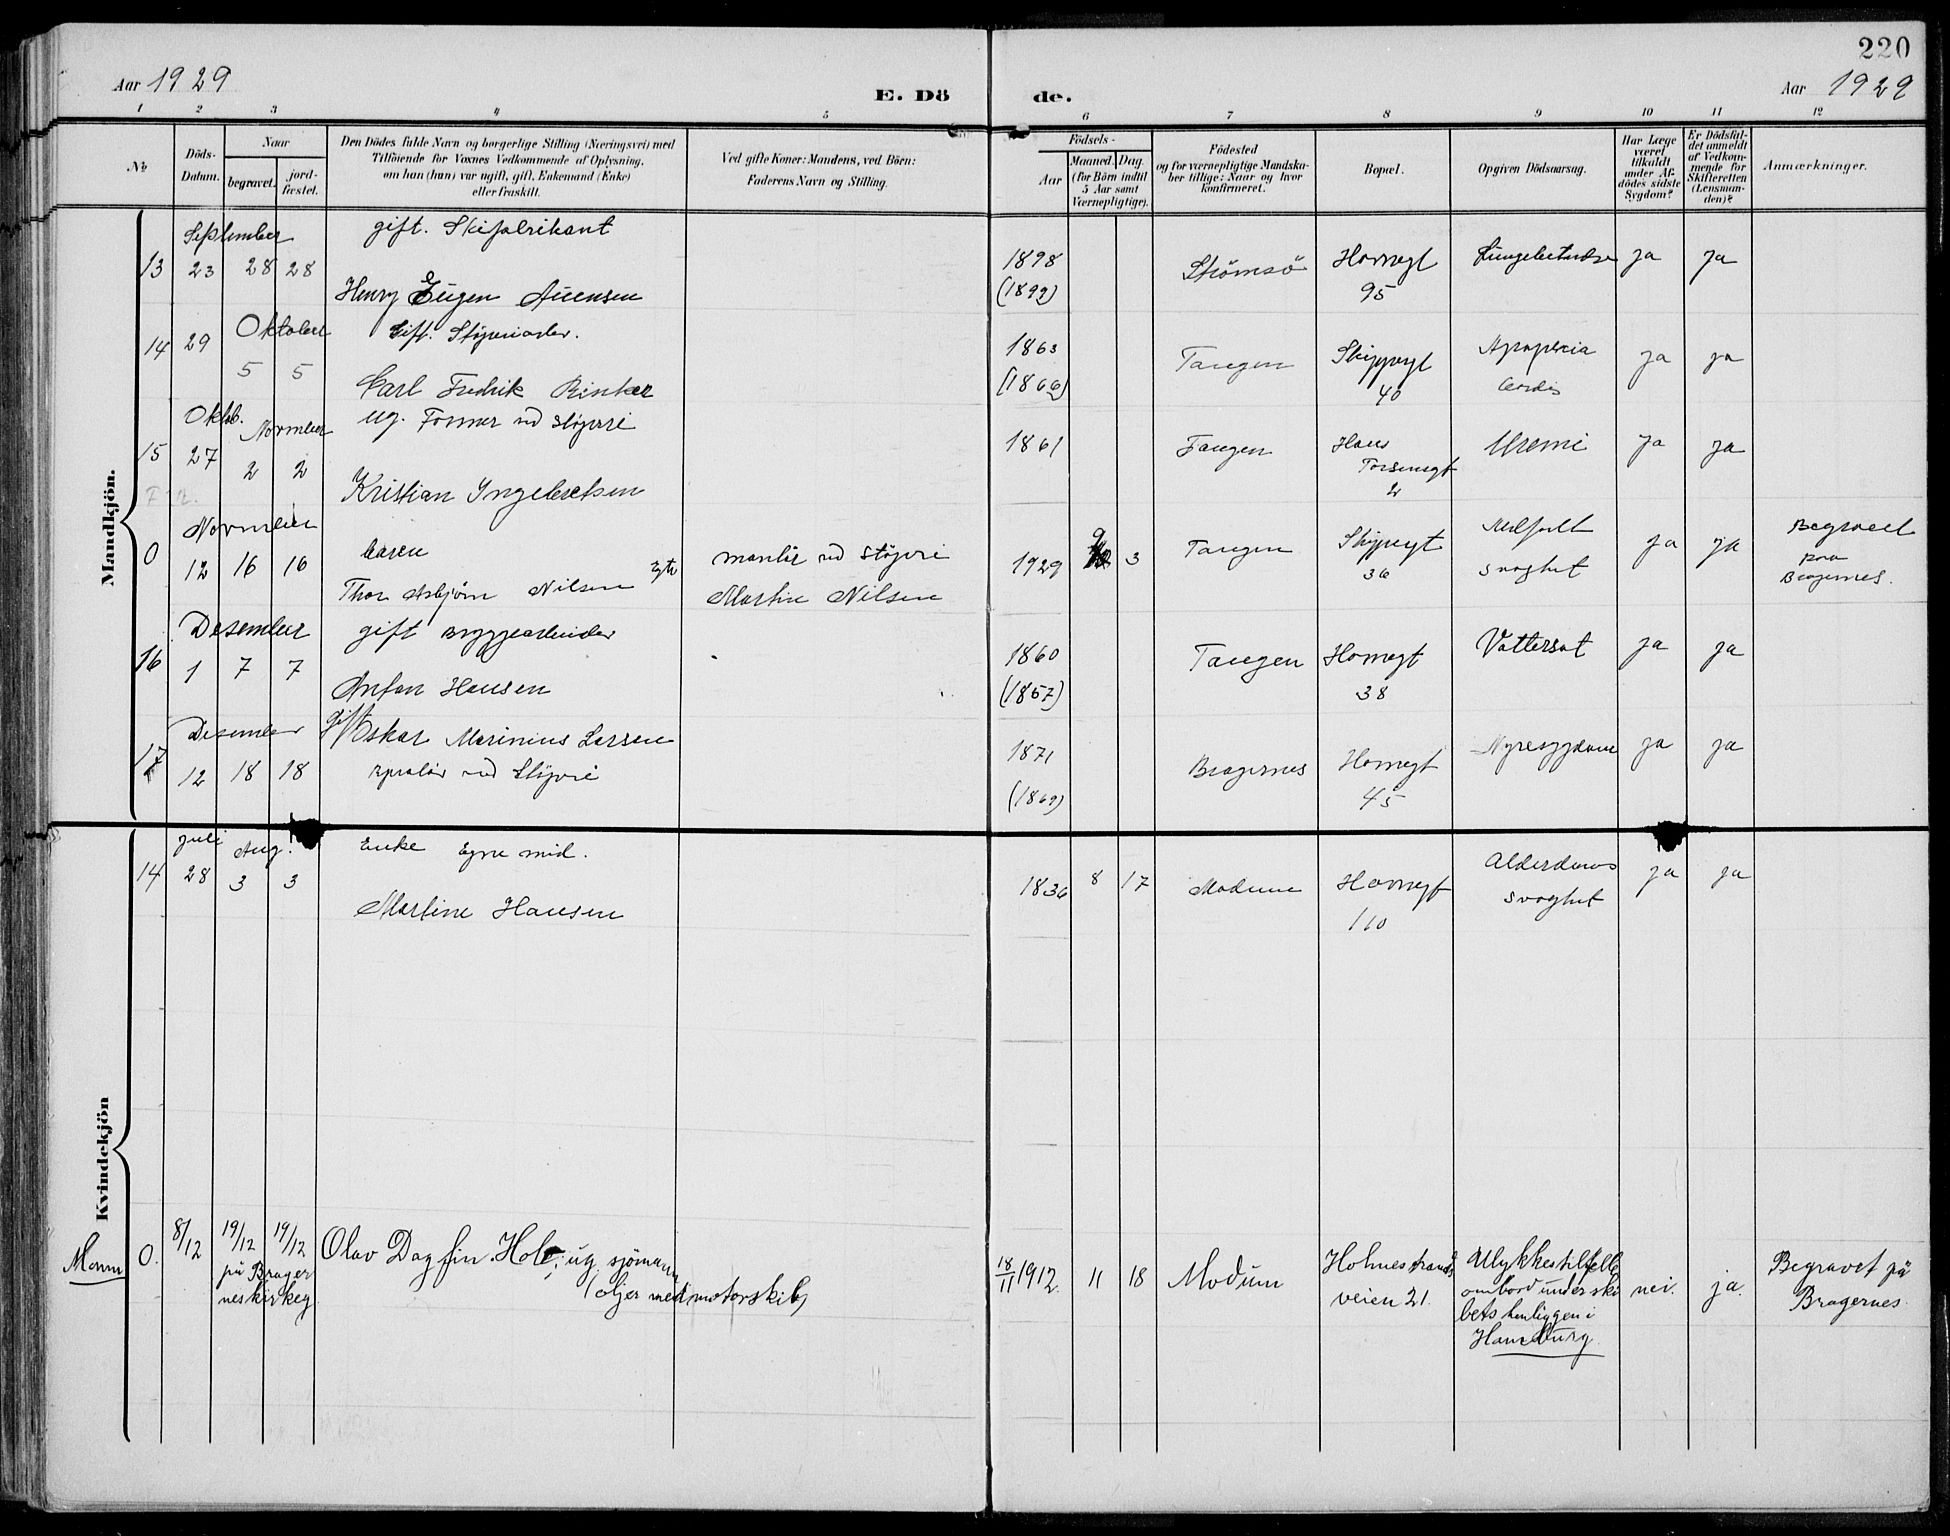 220
Aar 1929
E. Dö
de.
Aar 1929
1 2 3 4 5 6 7 8 9 10 11 12
No
Döds-
Datum.
Naar
begravet.
jord-
fæstet.
Den Dödes fulde Navn og borgerlige Stilling (Næringsvei) med
Tilföiende for Voxnes Vedkommende af Oplysning,
om han (hun) var ugift, gift, Enkemand (Enke)
eller fraskilt.
Ved gifte Koner: Mandens, ved Börn:
Faderens Navn og Stilling.
Födsels-
Aar
Maaned.
Dag.
(for Börn indtil
5 Aar samt
Værnepligtige).
Födested
og for værnepligtige Mandska-
ber tillige: Naar og hvor
konfirmeret.
Bopæl.
Opgiven Dödsaarsag.
Har Læge
været
tilkaldt
under Af-
dödes sidste
Sygdom?
Er Dödsfal-
det anmeldt
af Vedkom-
mende for
Skifteretten
(Lensman-
den)?
Anmærkninger.
Mandkjön.
September
gift. Skifabrikant
13 23 28 28
Henry Eugen
1898
(1899)
Strömsö
Havnegt
95
ja ja
14 29
Oktober
5 5
Gift.
Carl Fredrik
1863
(1866)
Tangen
Skippergt
40
Apoplexia
Cordis
ja ja
Oktob.
November
15 27 2 2
ug. Former ved Støperi
Kristian Ingebretsen
1861
Tangen
Hans
2
Uremi
ja ja
November
0 12 16 16
Thor Asbjörn Nilsen
Martin Nilsen
1929 9 3
Tangen
Skippergt
36
Medfødt
svaghet
ja ja
Begravet
paa
Bragernes.
Desember
16 1 7 7
gift Bryggearbeider
Anton Hansen
1860
(1857)
Tangen
Havnegt
38
Vattersot
ja ja
Desember
17 12 18 18
gift Oskar Marinius Larsen
ved Støperi
1871
(1869)
Bragernes
Havnegt
45
Nyresygdom
ja ja
Kvindekjön
juli
Aug.
14 28 3 3
Enke Egne mid.
Martine Hansen
1836 8 17
Modum
Havnegt
110
Alderdoms
svaghet
ja ja
Mann 0. 8/12 19/12 19/12
på Brager
neskirkeg
Olav Dagfin Hole, ug. sjömann
(oljer med motorskib)
18/11 1912. 11 18
Modum
Holmestrands
veien 21.
Ulykkestilfelle
ombord under ski
bets henliggen i
Hamburg
nei. ja.
Begravet på
Bragernes